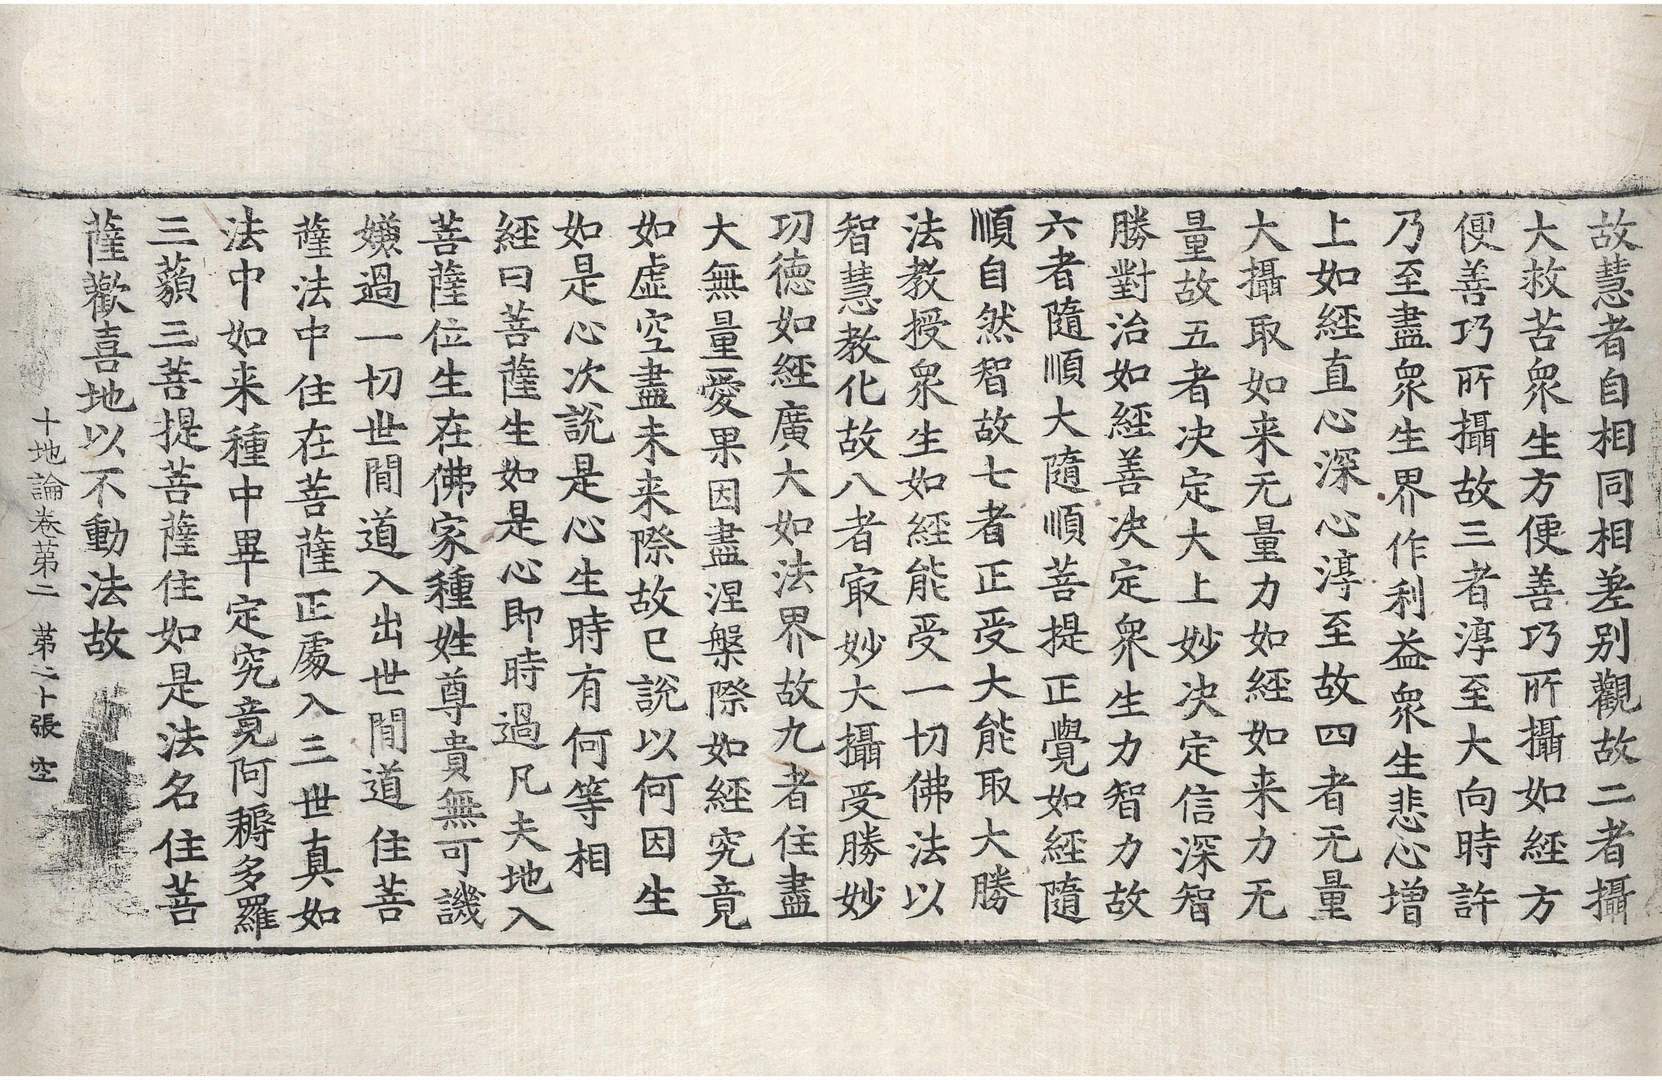 故慧者自相同相差别觀故二者攝
大救苦衆生方便善巧所攝如經方
便善巧所攝故三者淳至大向時許
乃至盡衆生界作利益衆生悲心增
上如經直心深心淳至故四者无量
大攝取如来无量力如經如来力无
量故五者决定大上妙决定信深智
勝對治如經善决定衆生力智力故
六者隨順大隨順菩提正覺如經隨
順自然智故七者正受大能取大勝
法教授衆生如經能受一切佛法以
智慧教化故八者㝡妙大攝受勝妙
功德如經廣大如法界故九者住盡
大無量愛果因盡涅槃際如經究竟
如虛空盡未来際故已說以何因生
如是心次說是心生時有何等相
經曰菩薩生如是心即時過凡夫地入
菩薩位生在佛家種姓尊貴無可譏
嫌過一切世間道入出世間道住菩
薩法中住在菩薩正處入三世真如
法中如来種中畢定究竟阿耨多羅
三藐三菩提菩薩住如是法名住菩
薩歡喜地以不動法故
十地論卷第二 第之卜張 空